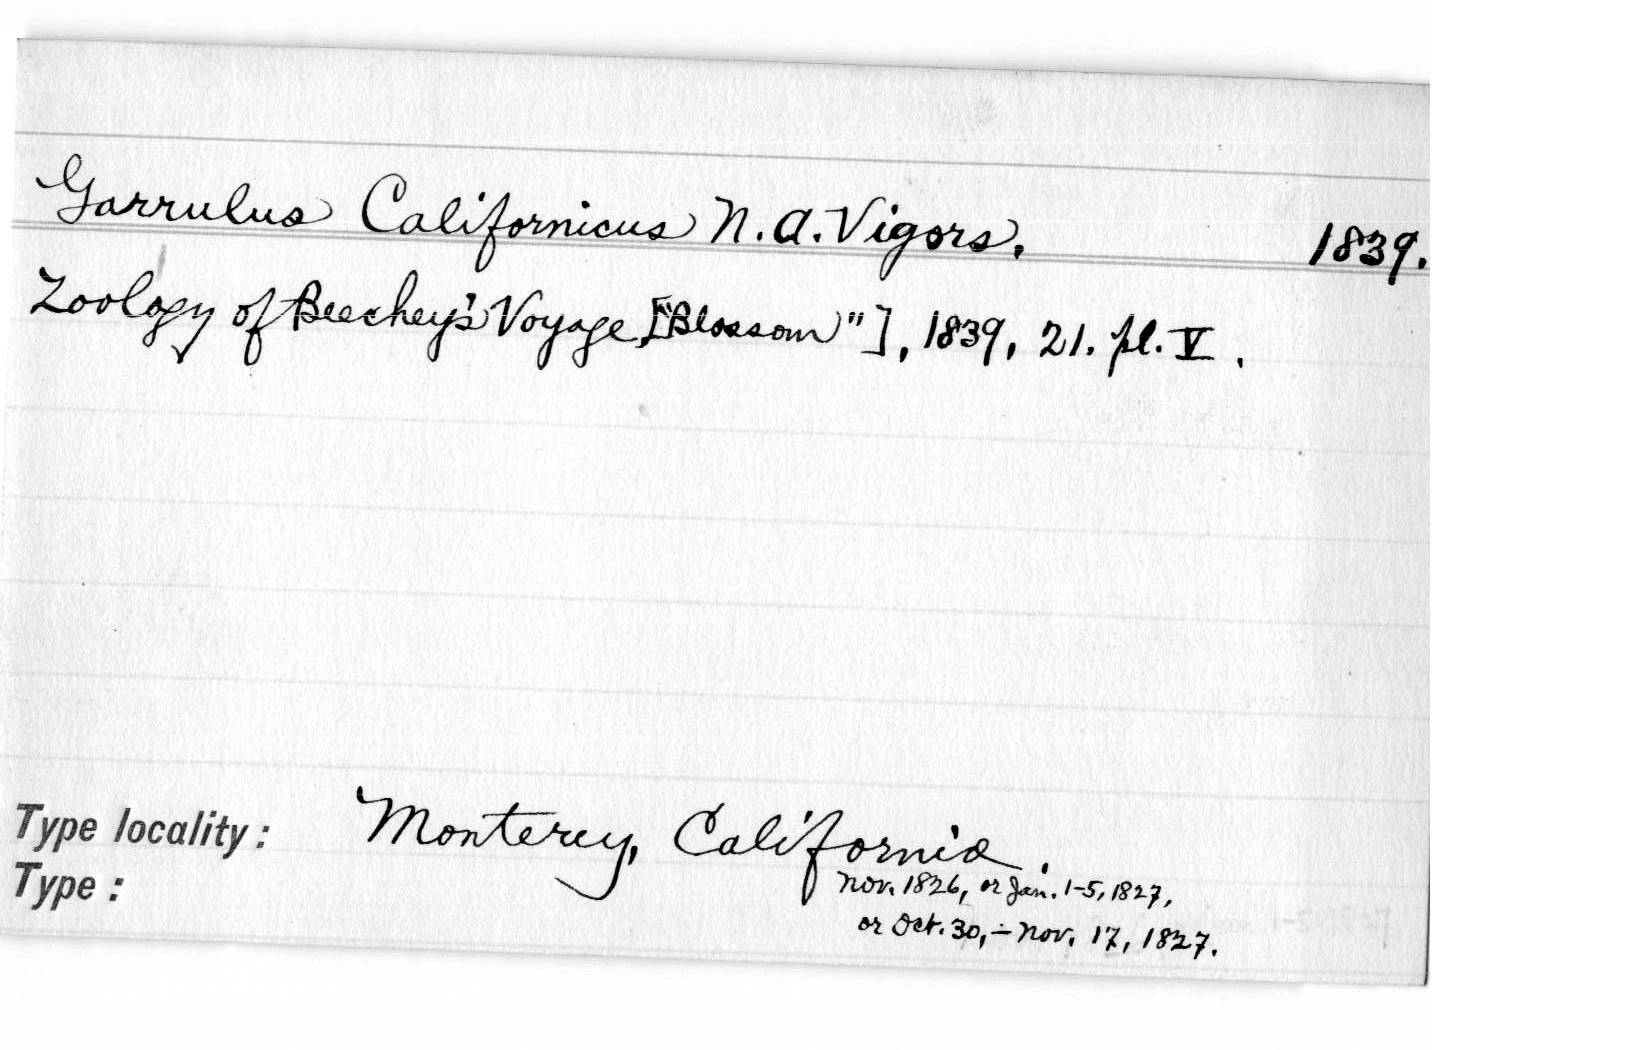 Garrulus Californicus N.A. Vigors. 1839.
Zoology of Beechey's Voyage ["Blossom"], 1839, 21. pl. V.
Type locality: Monterey, California.
Type:
Nov. 1826, or Jan. 1-5, 1827,
or Oct. 30,-Nov. 17, 1827.